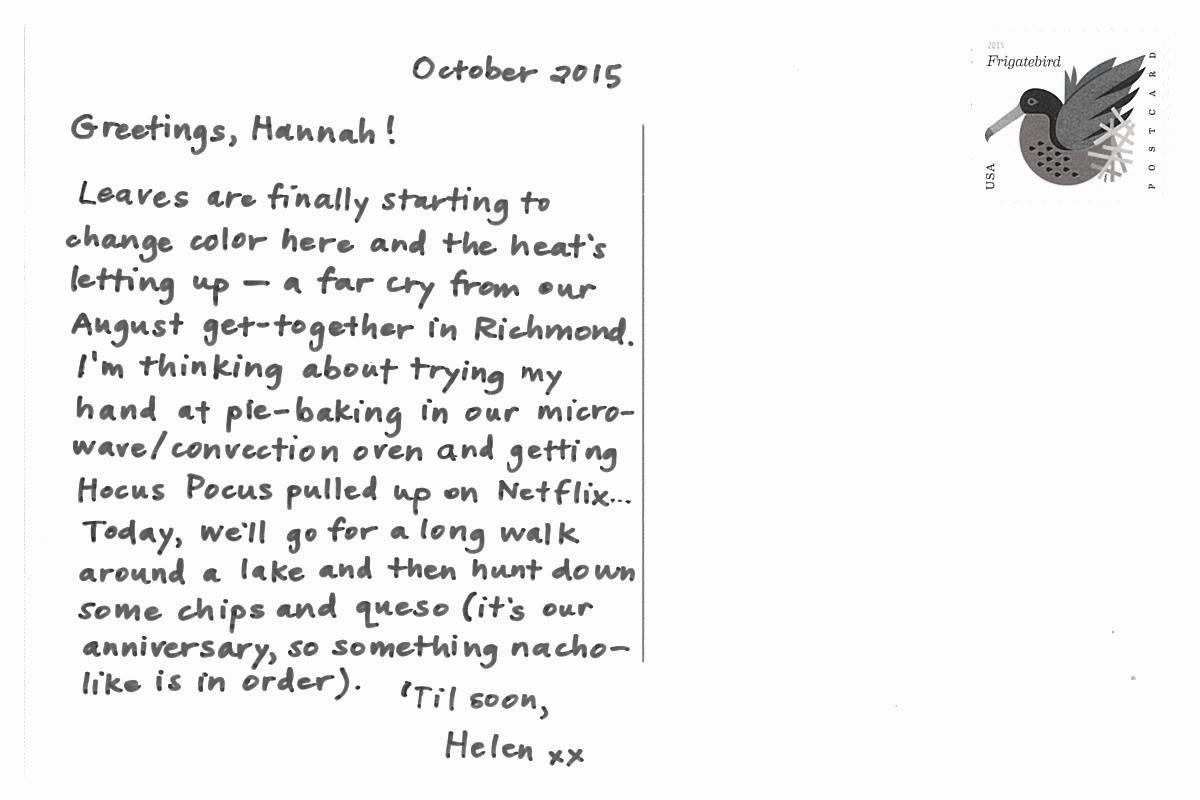 October 2015
Greetings, Hannah!
Leaves are finally starting to
change color here and the heat's
letting up — a far cry from our
August get-together in Richmond.
I'm thinking about trying my
hand at pie-baking in our micro-
wave/convection oven and getting
Hocus Pocus pulled up on Netflix...
Today, we'll go for a long walk
around a lake and then hunt down
some chips and queso (it's our
anniversary, so something nacho-
like is in order).
'Til soon,
Helen xx
2015
Frigatebird
USA
POSTCARD